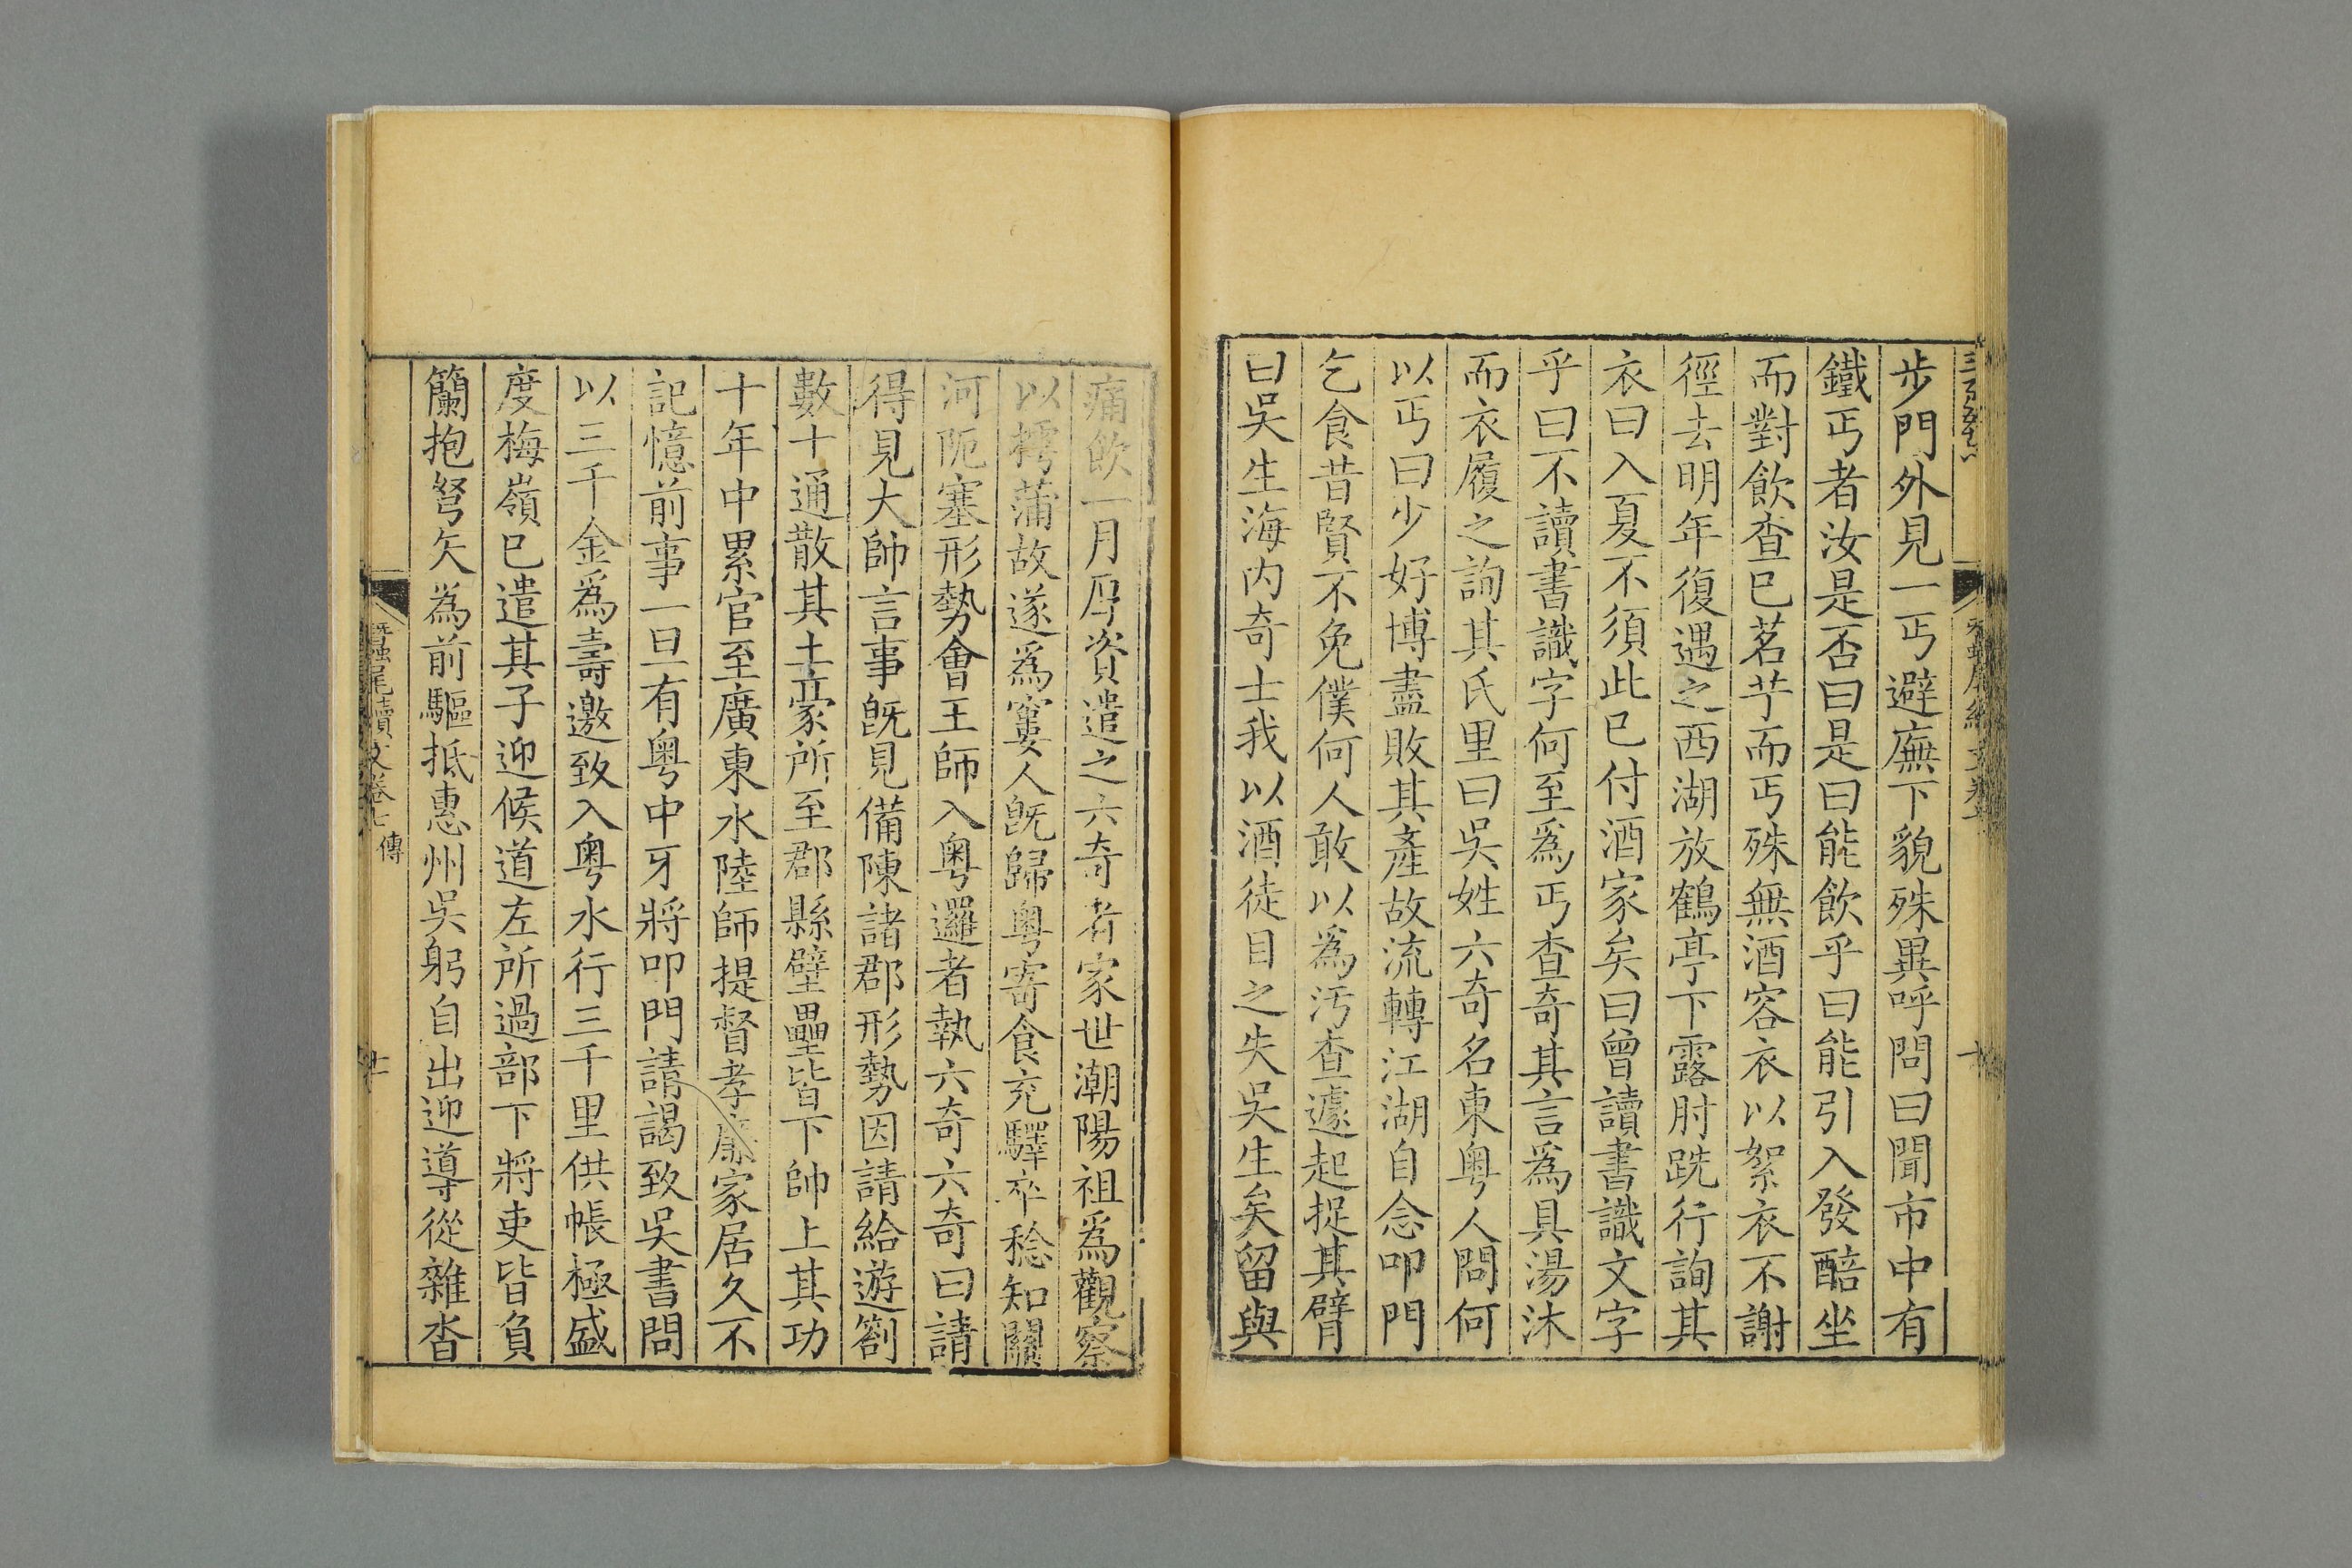 步門外見一丐避廡下貌殊異呼問曰聞市中有
鐵丐者汝是否曰是曰能飲乎曰能引入發醅坐
而對飲查已茗艼而丐殊無酒容衣以絮衣不謝
徑去明年復遇之西湖放鶴亭下露肘跣行詢其
衣曰入夏不須此已付酒家矣曰曾讀書識文字
乎曰不讀書識字何至爲丐查奇其言爲具湯沐
而衣履之詢其氏里曰吳姓六奇名東粵人問何
以丐曰少好博盡敗其產故流轉江湖自念叩門
乞食昔賢不免僕何人敢以爲汚查遽起捉其臂
曰吳生海内奇士我以酒徒目之失吳生矣留與
痛飲一月厚資遣之六奇者家世潮陽祖爲觀察
以樗蒲故遂爲窶人旣歸粵寄食充驛卒稔知關
河阨塞形勢會王師入粵邏者執六奇六奇曰請
得見大帥言事旣見備陳諸郡形勢因請給遊劄
數十通散其土豪所至郡縣壁壘皆下帥上其功
十年中累官至廣東水陸師提督孝廉家居久不
記憶前事一旦有粵中牙將叩門請謁致吳書問
以三千金爲壽邀致入粵水行三千里供帳極盛
度梅嶺已遣其子迎候道左所過部下將吏皆負
籣抱弩矢爲前驅抵惠州吳躬自出迎導從雜沓
蠶尾續文卷七 傳
十一